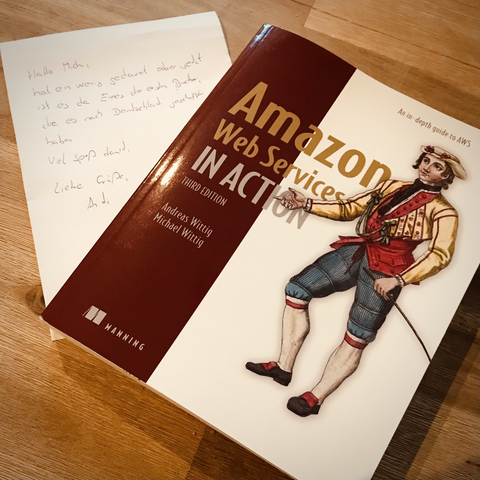 Hallo Michi,
hat ein wenig gedauert aber jetzt
ist es da. Eines der ersten Bücher,
die es nach Deutschland geschafft
haben.
Viel Spaß damit.
Liebe Grüße,
Andi
An in-depth guide to AWS
Amazon
Web Services
IN ACTION
THIRD EDITION
Andreas Wittig
Michael Wittig
MANNING